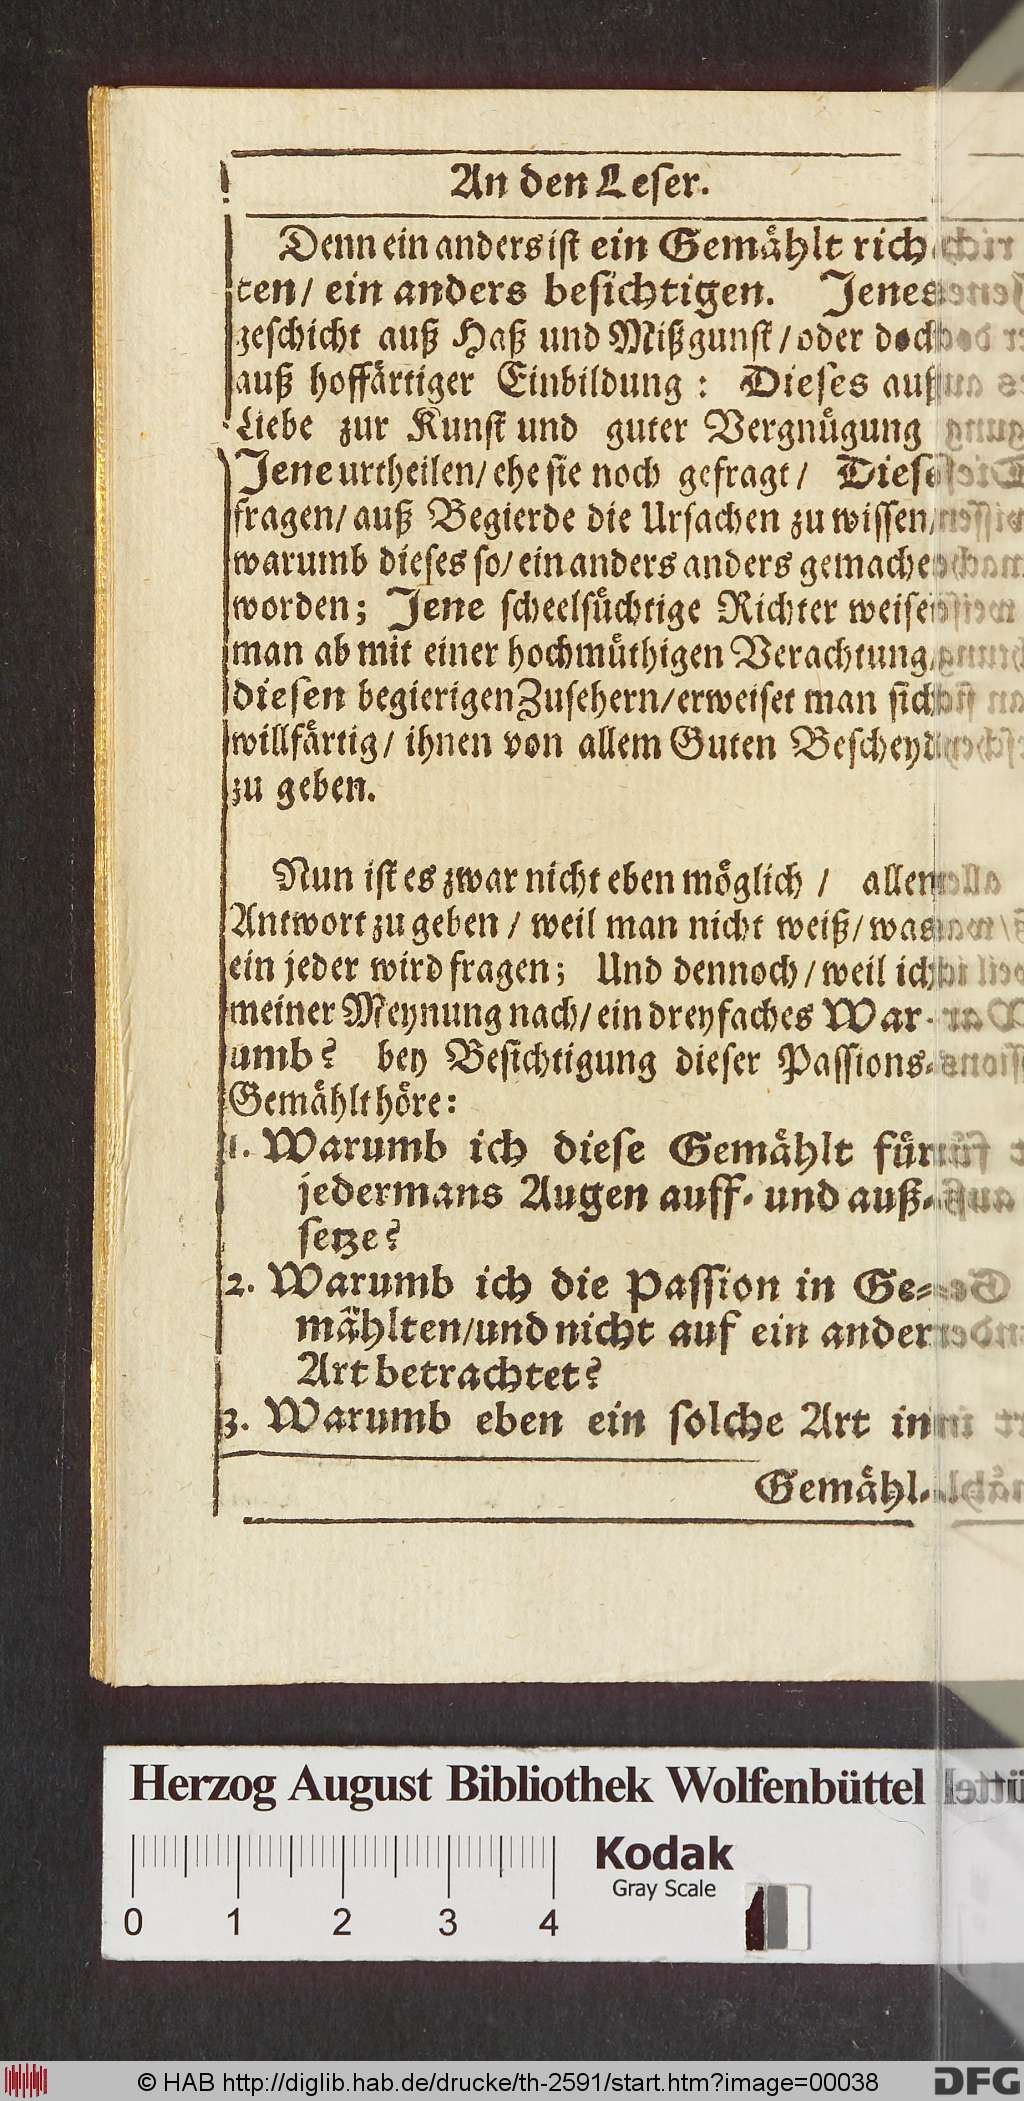 An den Leser.
Denn ein anders ist ein Gemåhlt rich-
ten/ ein anders besichtigen. Jenes
geschicht auß Haß und Mißgunst/oder doch
auß hoffårtiger Einbildung: Dieses auß
Liebe zur Kunst und guter Vergnůgung
Jene urtheilen/ ehe sie noch gefragt/ Diese
fragen/ auß Begierde die Ursachen zu wissen/
warumb dieses so/ ein anders anders gemachet
worden; Jene scheelsůchtige Richter weiset
man ab mit einer hochmůthigen Verachtung/
diesen begierigen Zusehern/erweiset man sich
willfårtig/ ihnen von allem Guten Bescheyd
zu geben.
Nun ist es zwar nicht eben mőglich / allen
Antwort zu geben / weil man nicht weiß/ was
ein jeder wird fragen; Und dennoch/ weil ich
meiner Meynung nach/ ein dreyfaches War-
umb? bey Besichtigung dieser Passions-
Gemåhlt hőre:
1. Warumb ich diese Gemåhlt fůr
jedermans Augen auff- und auß-
setze?
2. Warumb ich die Passion in Ge-
måhlten/und nicht auf ein andere
Art betrachtet?
3. Warumb eben ein solche Art in
Gemåhl-
Herzog August Bibliothek Wolfenbüttel
Kodak
Gray Scale
0 1 2 3 4
© HAB http://diglib.hab.de/drucke/th-2591/start.htm?image=00038
DFG